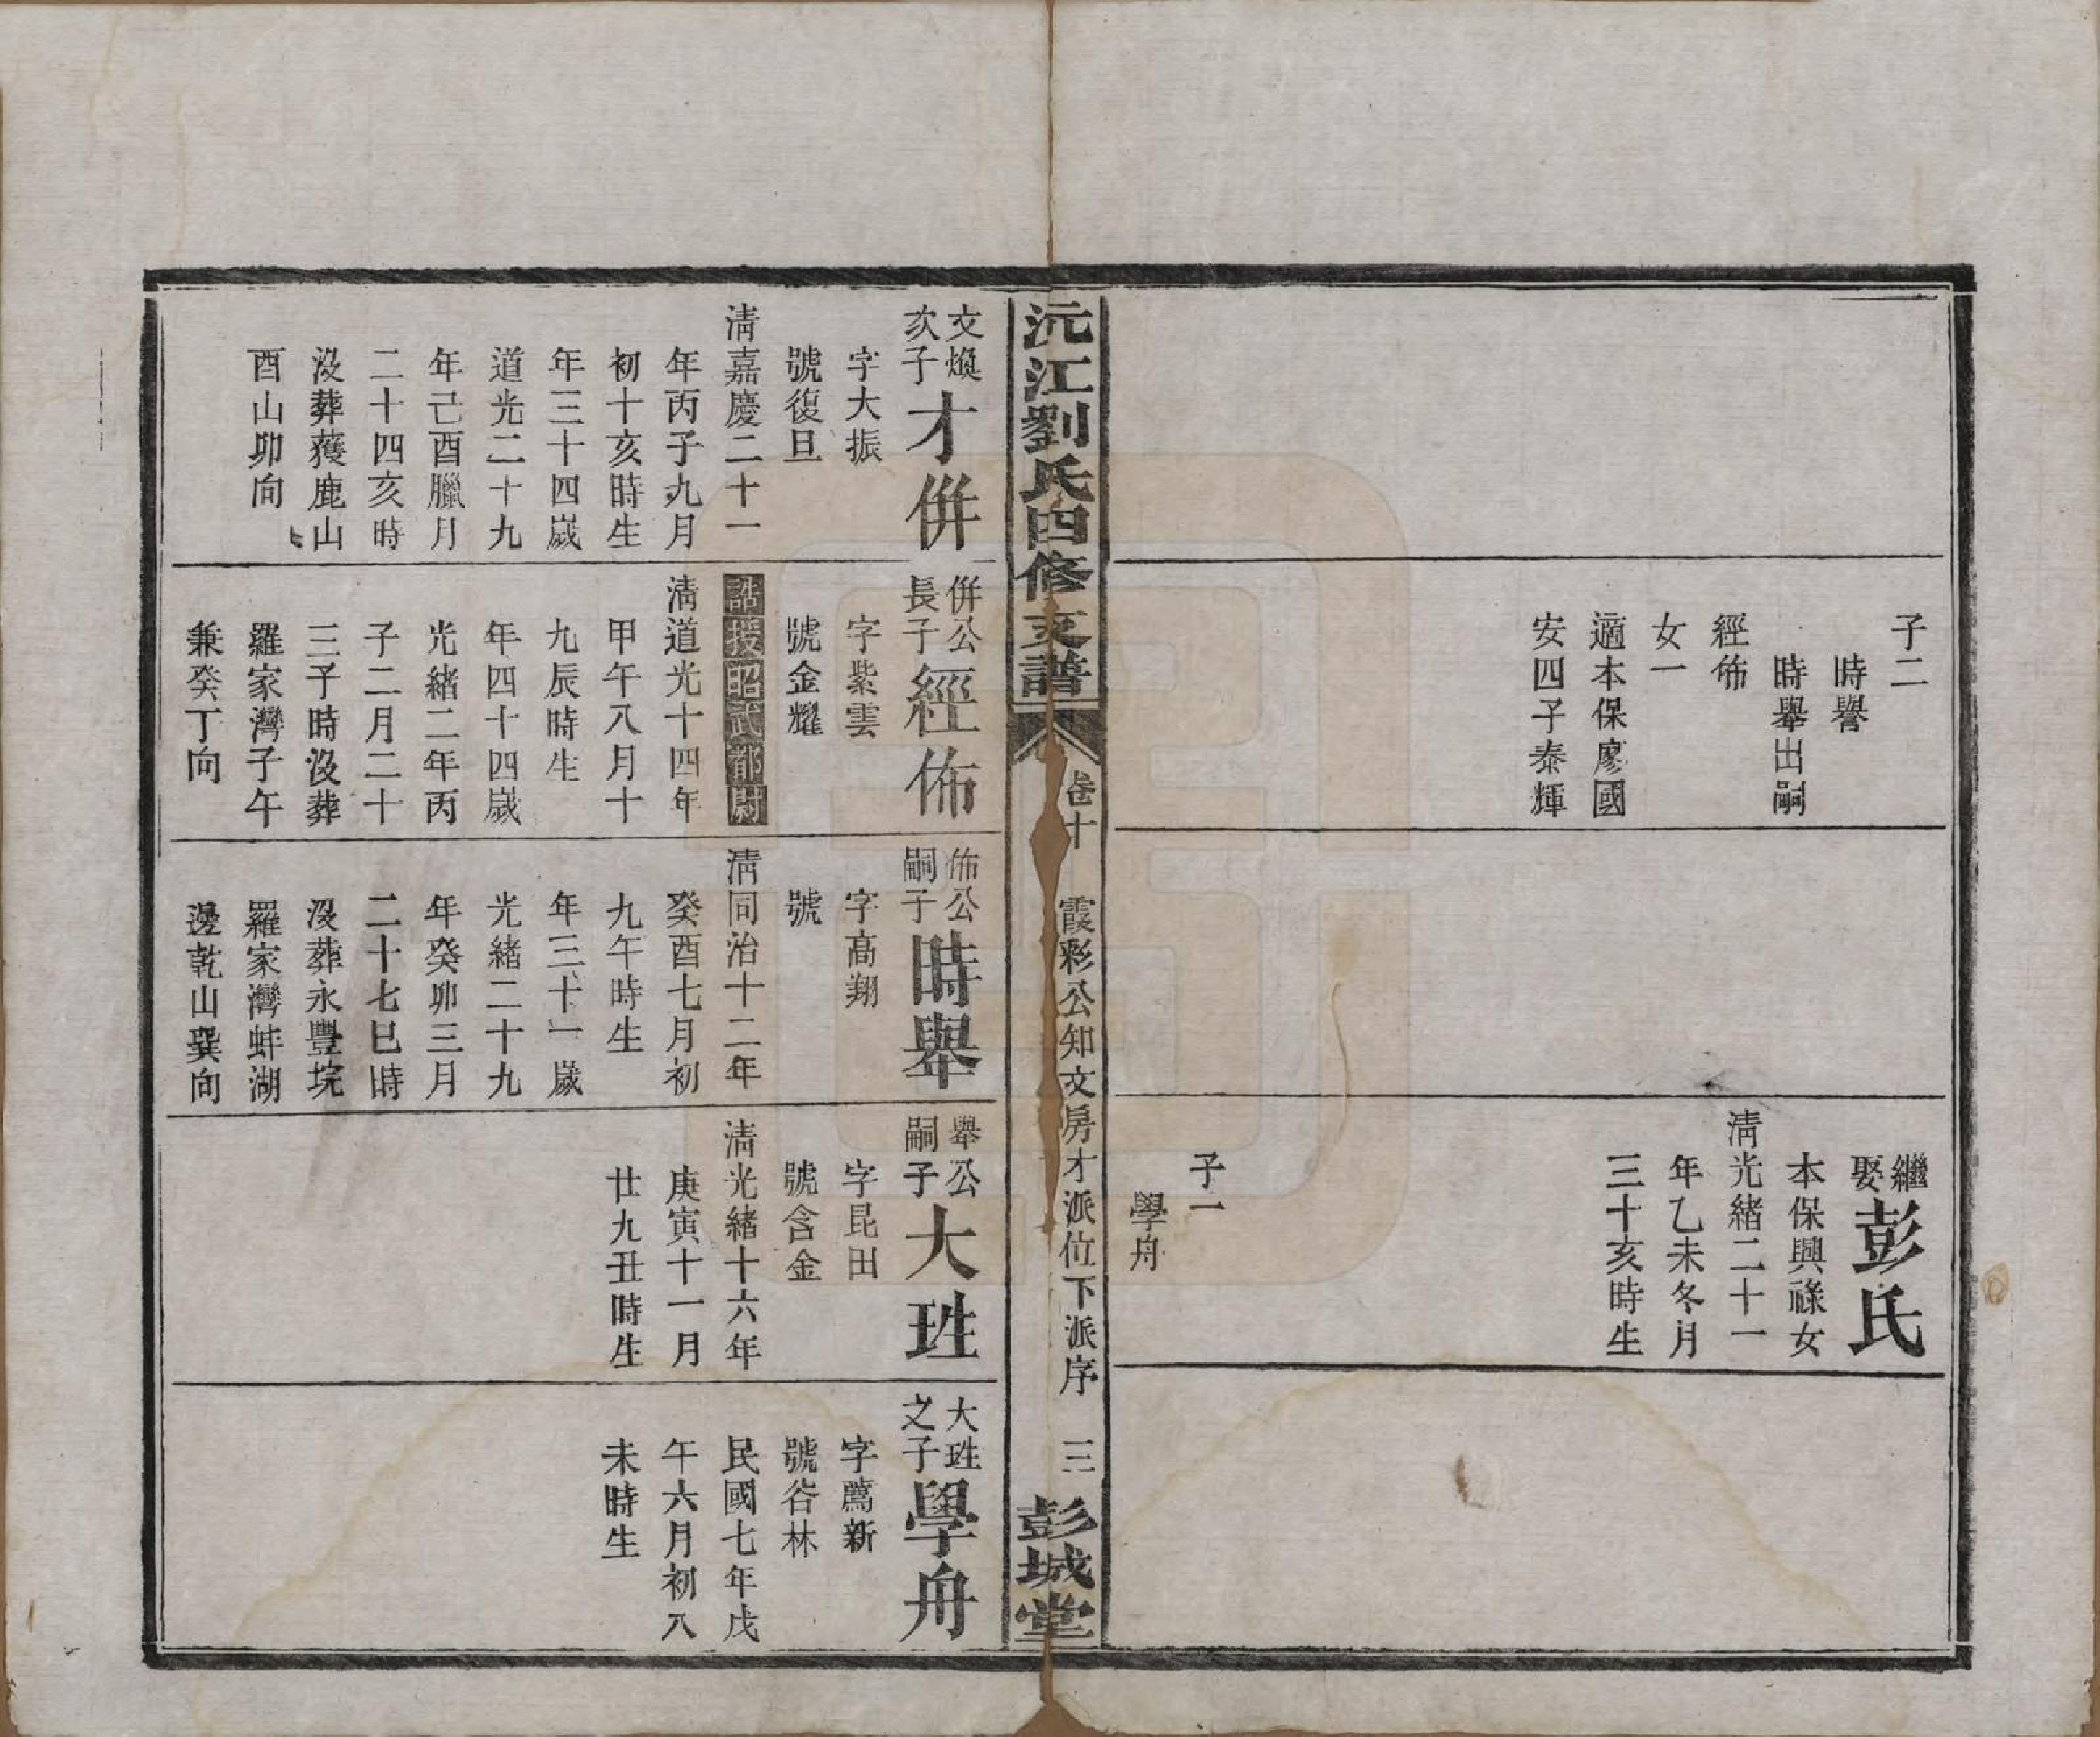 子二
時譽
時舉出嗣
經佈
女一
適本保廖國
安四子泰輝
繼娶彭氏
本保興祿女
清光緒二十一
年乙未冬月
三十亥時生
子一
學舟
沅江劉氏四修支譜
卷十
霞彩公知文房才派位下派序
三
彭城堂
文煥次子才倂
字大振
號復旦
清嘉慶二十一
年丙子九月
初十亥時生
年三十四歲
道光二十九
年己酉臘月
二十四亥時
沒葬蔆鹿山
酉山卯向
倂公長子經佈
字紫雲
號金耀
誥授昭武都尉
清道光十四年
甲午八月十
九辰時生
年四十四歲
光緒二年丙
子二月二十
三子時沒葬
羅家灣子午
兼癸丁向
佈公嗣子時舉
字高翔
號
清同治十二年
癸酉七月初
九午時生
年三十一歲
光緒二十九
年癸卯三月
二十七巳時
沒葬永豐垸
羅家灣蚌湖
邊乾山巽向
舉公嗣子大珄
字昆田
號含金
清光緒十六年
庚寅十一月
廿九丑時生
大珄之子學舟
字薦新
號谷林
民國七年戊
午六月初八
未時生